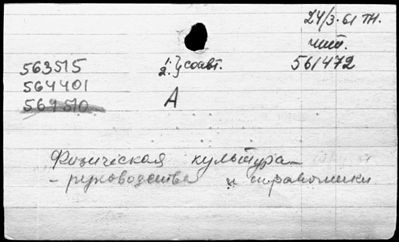 24/3-61 тн.
чит.
563515 1. } соавт. 561472
564401 2.
569510 А
Физическая культура –
– руководства и справочники